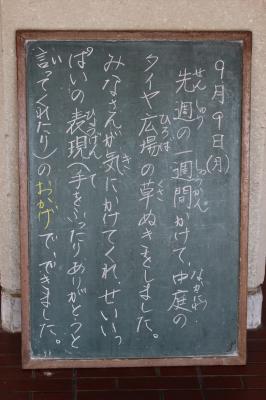 9月9日(月)
先週の一週間かけて、中庭の
タイヤ広場の草ぬきをしました。
みなさんが気にかけてくれ、せいいっ
ぱいの表現(手をふったり、ありがとうと
言ってくれたり)のおかげで、できました。